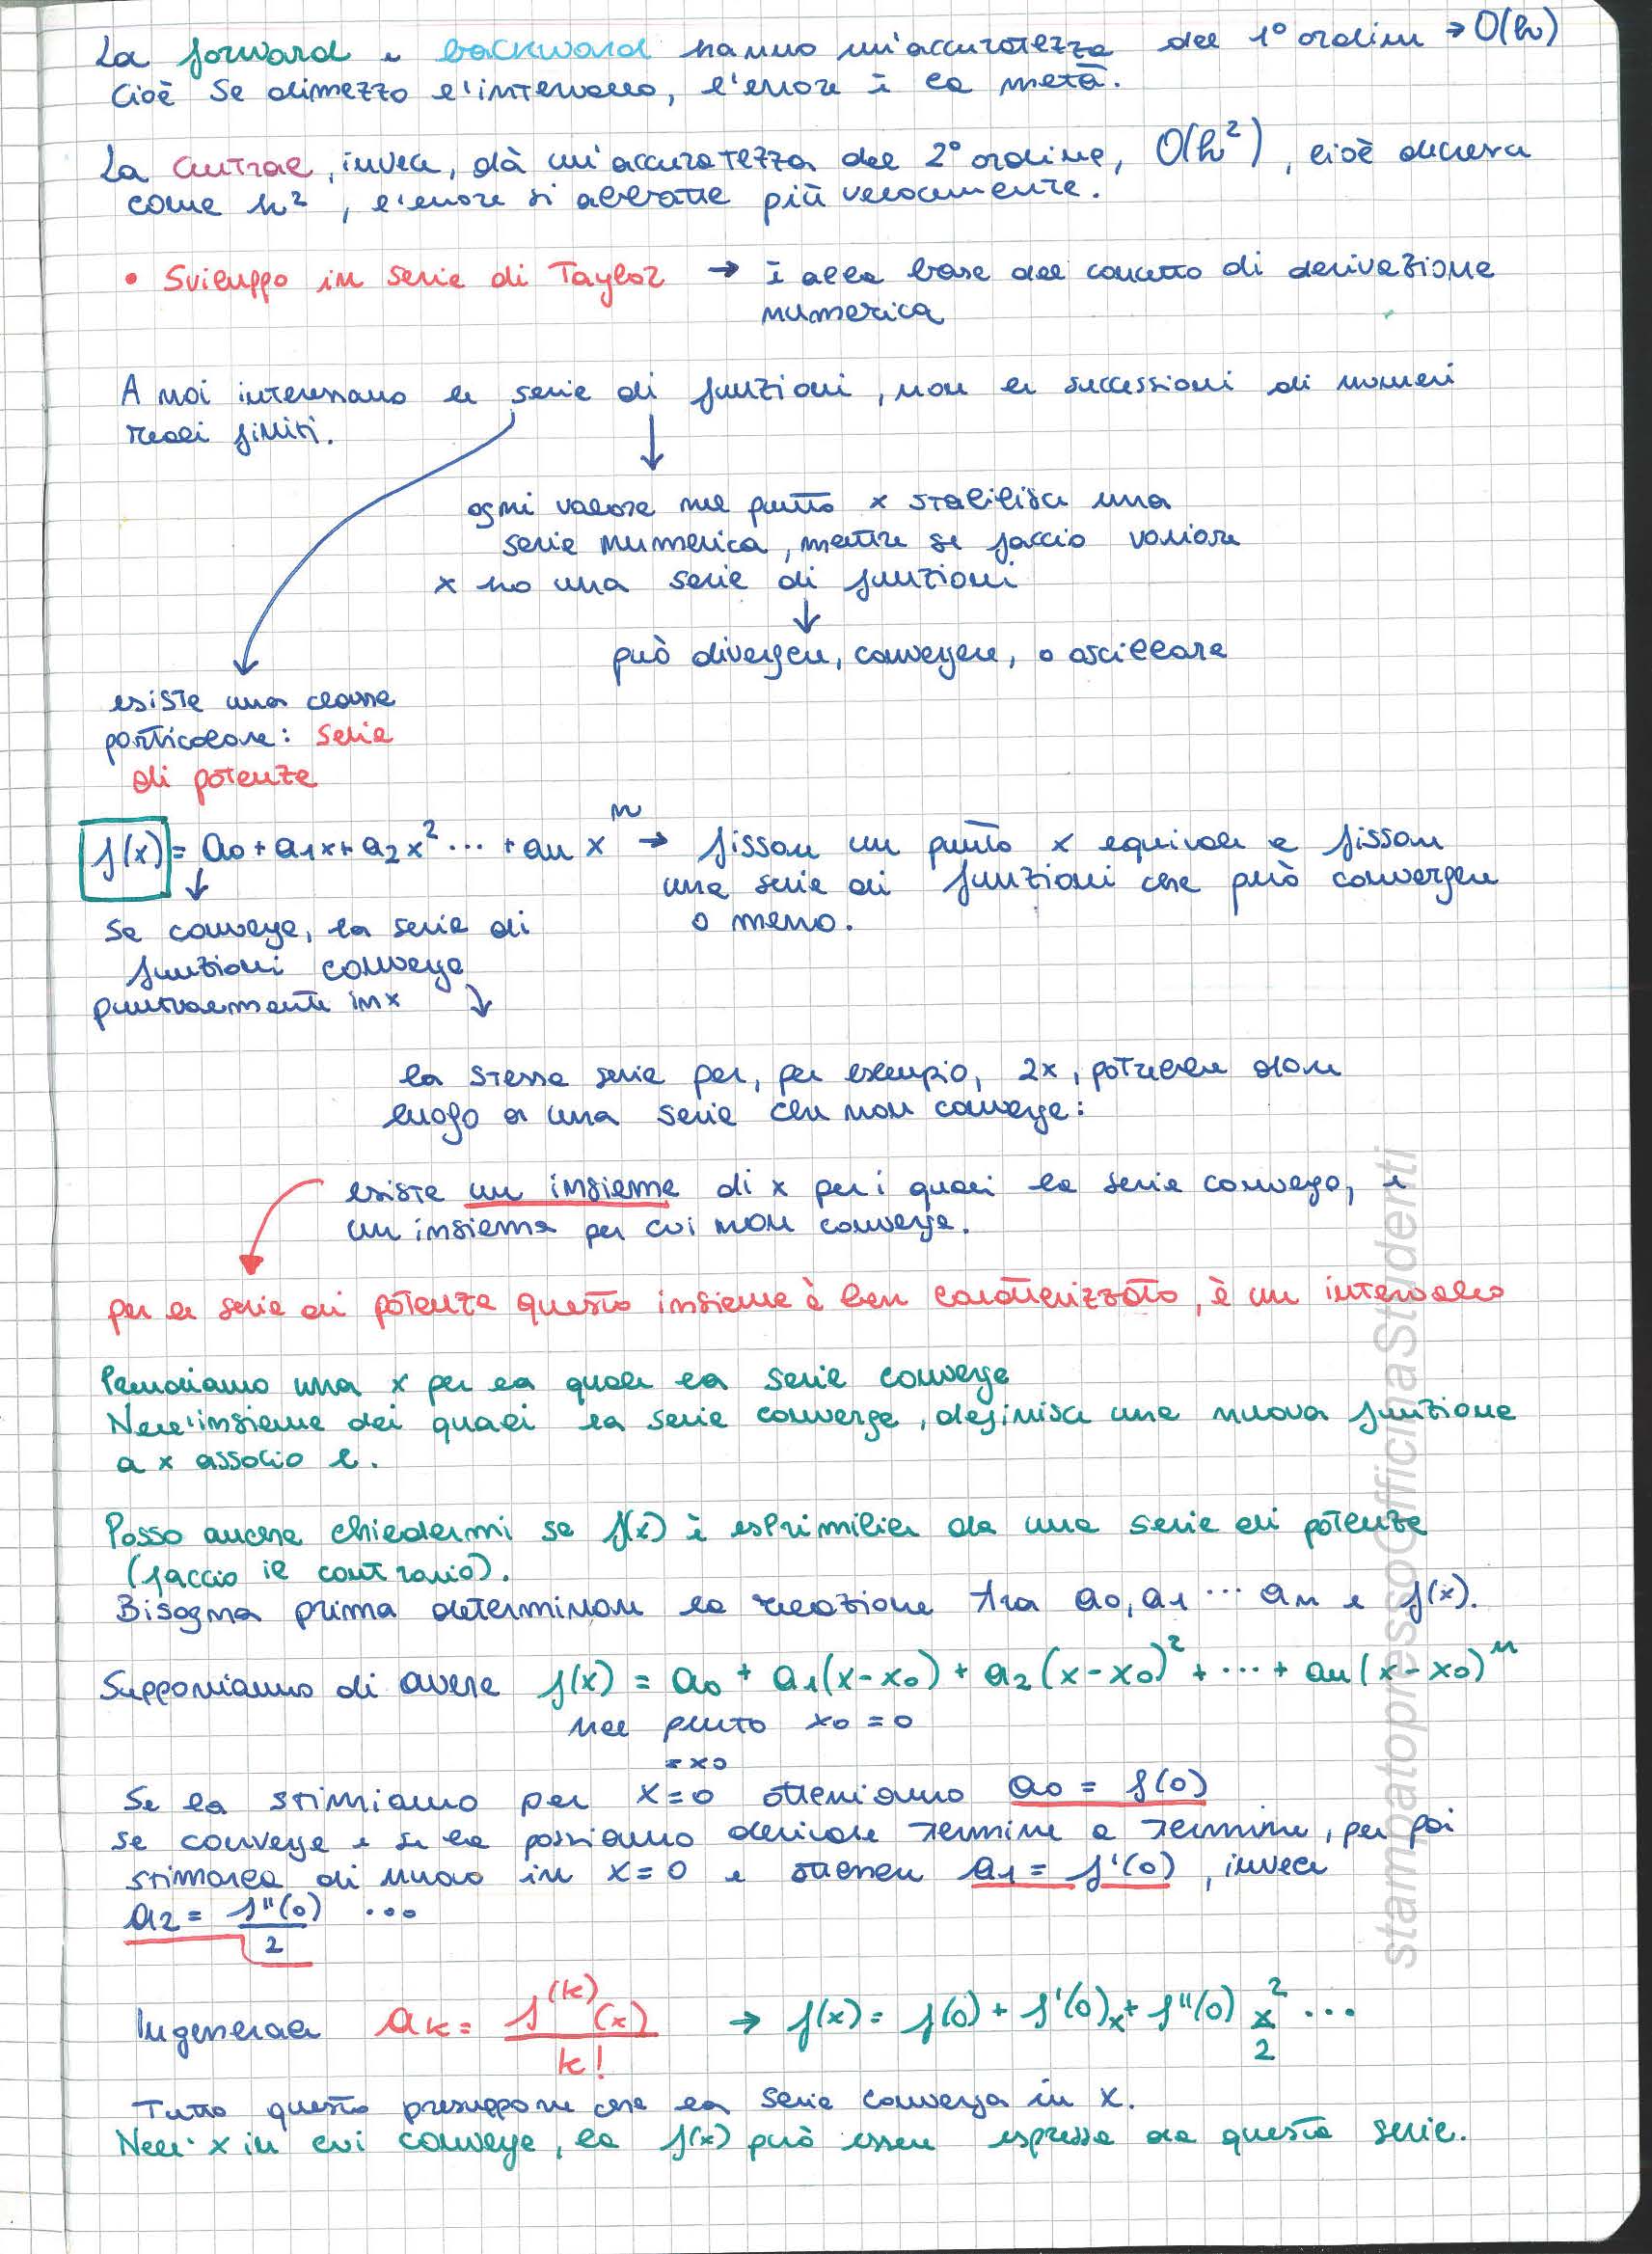 La forward e backward hanno un'accuratezza del 1° ordine → O(h)
Cioè se dimezzo l'intervallo, l'errore è la metà.
La centrale, invece, dà un'accuratezza del 2° ordine, O(h²), cioè decresce
come h², l'errore si abbatte più velocemente.
• Sviluppo in serie di Taylor → è alla base del concetto di derivazione
numerica
A noi interessano le serie di funzioni, non le successioni di numeri
reali finiti.
ogni valore nel punto x stabilisce una
serie numerica, mentre se faccio variare
x ho una serie di funzioni
↓
può divergere, convergere, o oscillare
esiste una classe
particolare: serie
di potenze
f(x) = a0 + a1x + a2x² ... + anxⁿ → fissare un punto x equivale a fissare
una serie di funzioni che può convergere
o meno.
↓
Se converge, la serie di
funzioni converge
puntualmente in x ↓
la stessa serie per, per esempio, 2x, potrebbe dare
luogo a una serie che non converge:
esiste un insieme di x per i quali la serie converge, e
un insieme per cui non converge.
per le serie di potenze questo insieme è ben caratterizzato, è un intervallo
Prendiamo una x per la quale la serie converge
Nell'insieme dei quali la serie converge, definisce una nuova funzione
a x associo l.
Posso anche chiedermi se f(x) è esprimibile da una serie di potenze
(faccio il contrario).
Bisogna prima determinare la relazione tra a0, a1 ... an e f(x).
Supponiamo di avere f(x) = a0 + a1(x-x0) + a2(x-x0)² + ... + an(x-x0)ⁿ
nel punto x0 = 0
= x0
Se la stimiamo per x=0 otteniamo a0 = f(0)
se converge e se la possiamo derivare termine a termine, per poi
stimarla di nuovo in x=0 e ottenere a1 = f'(0), invece
a2 = f''(0)/2 ...
In generale ak = f⁽ᵏ⁾(x)/k! → f(x) = f(0) + f'(0)x + f''(0) x²/2 ...
Tutto questo presuppone che la serie converga in x.
Nell' x in cui converge, la f(x) può essere espressa da questa serie.
stampatopressoOfficinaStudenti